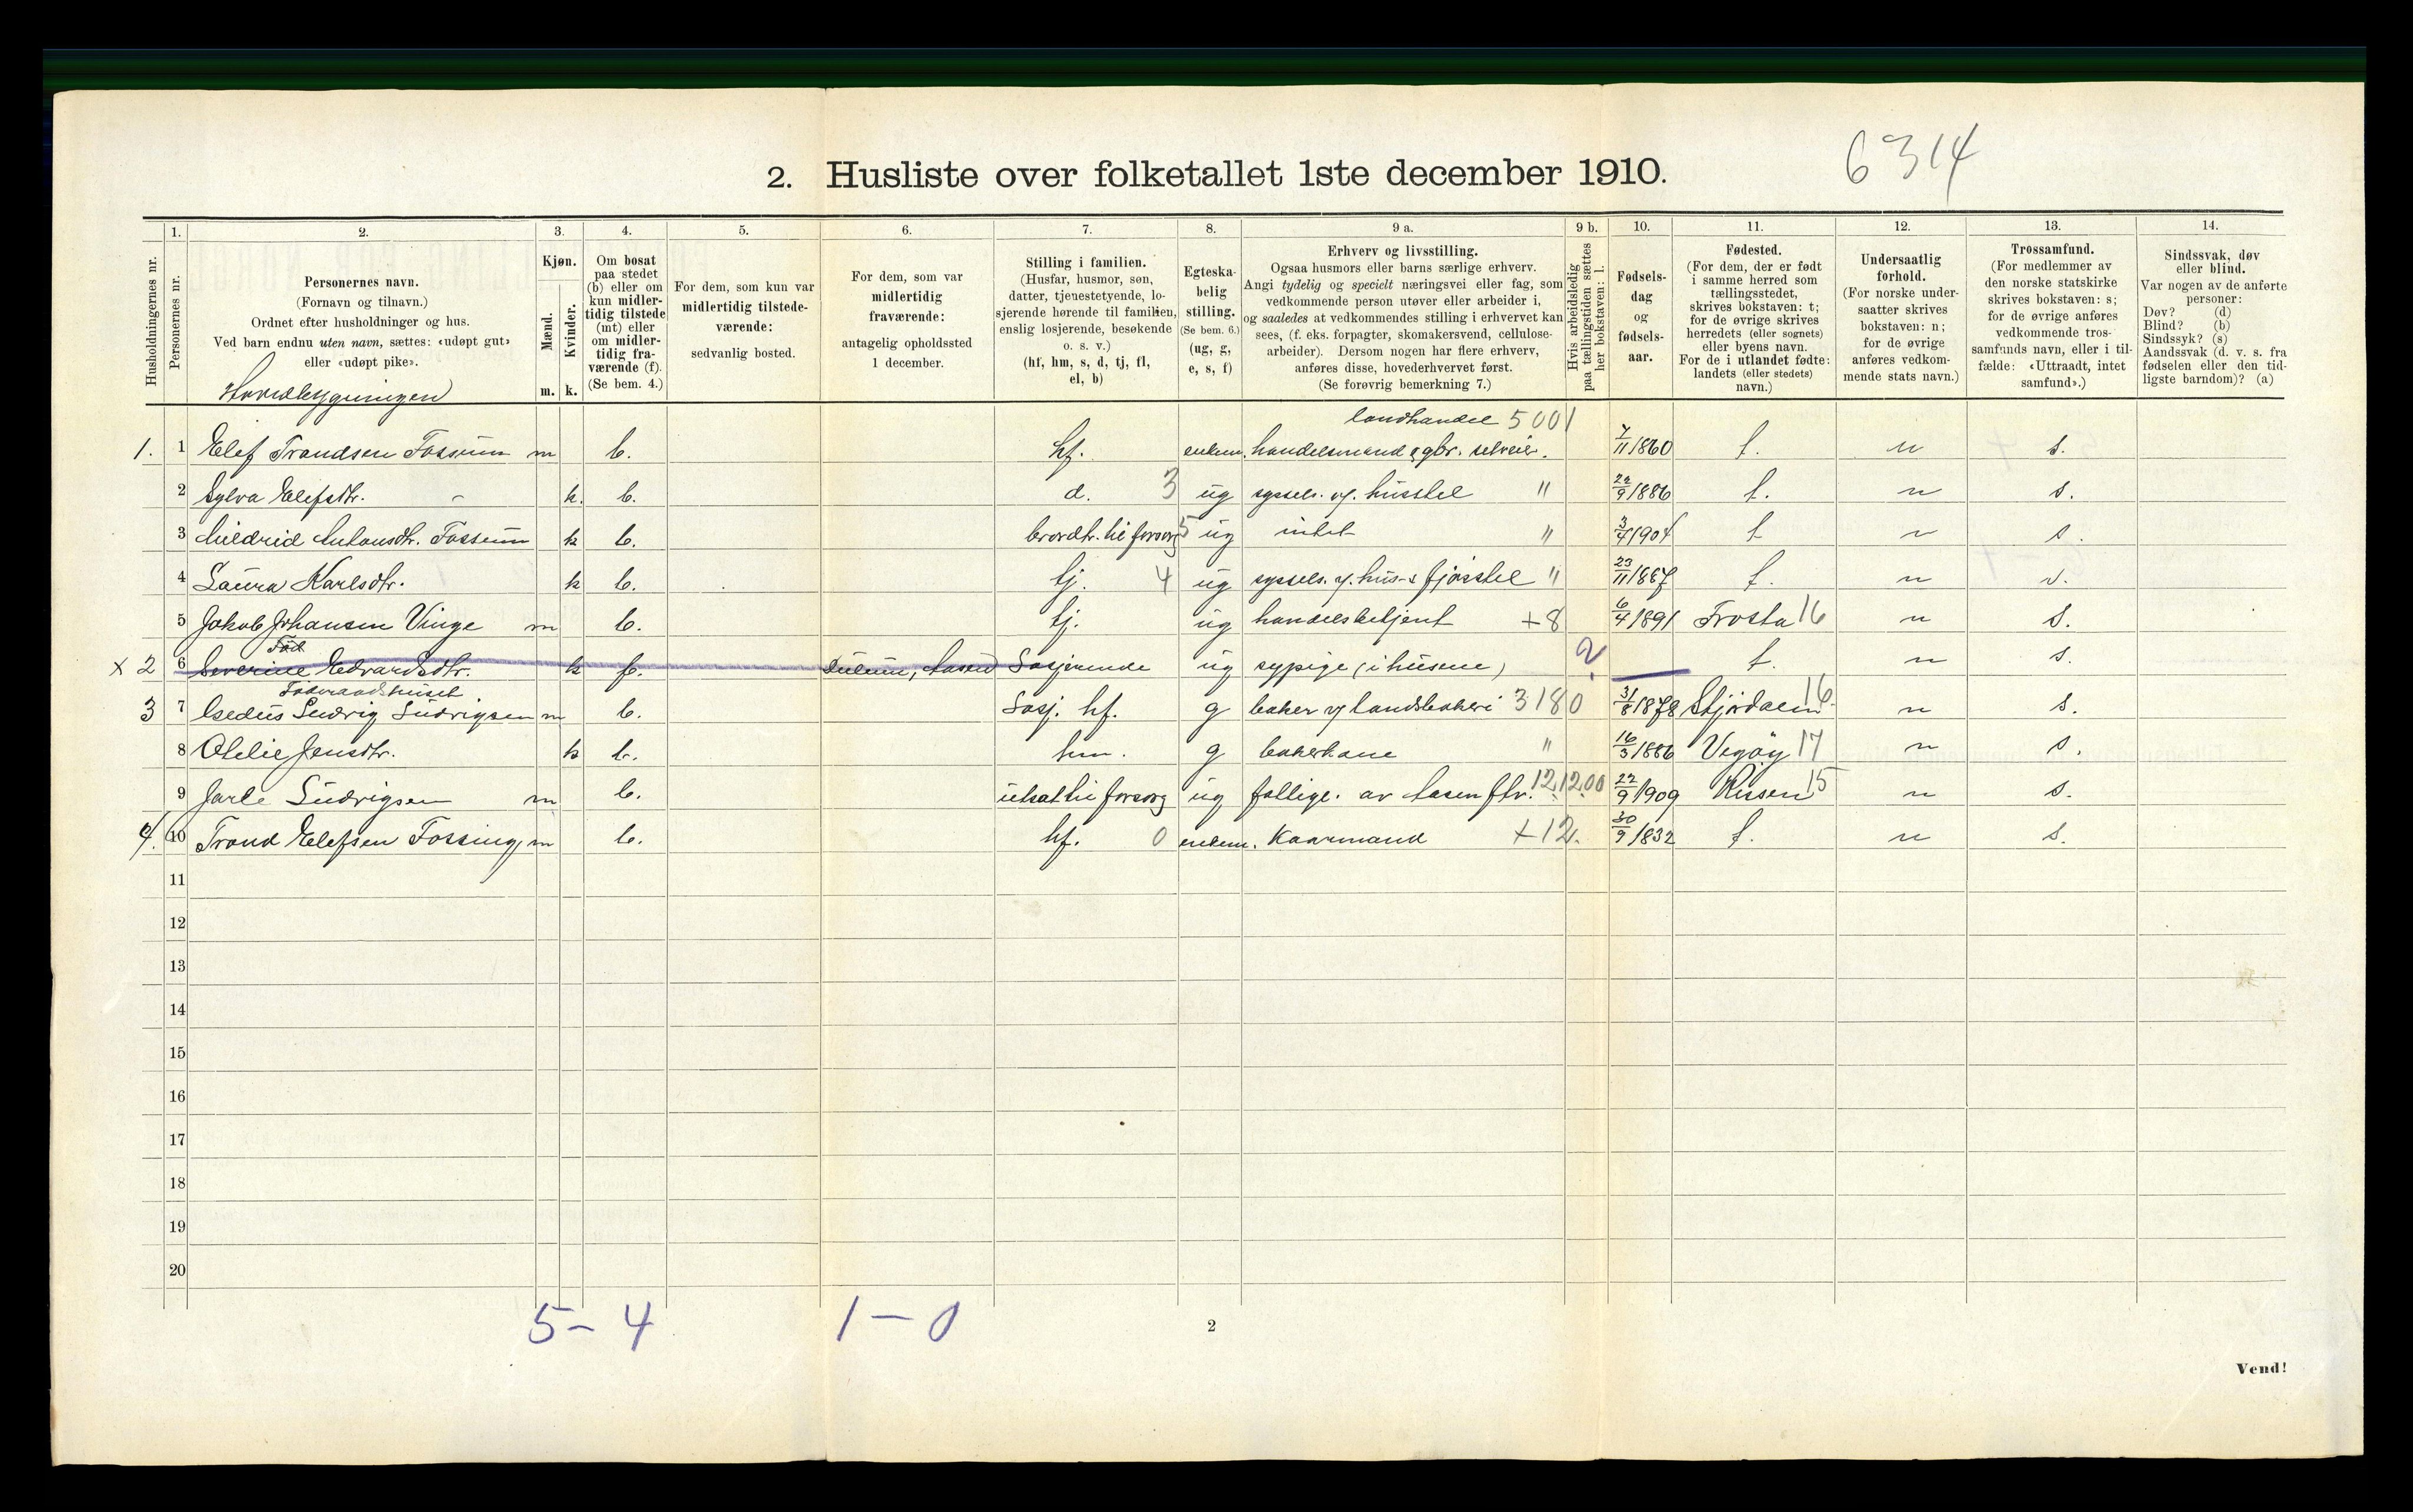 6314
2. Husliste over folketallet 1ste december 1910.
1. 2. 3. 4. 5. 6. 7. 8. 9 a. 9 b. 10. 11. 12. 13. 14.
Husholdningernes nr.
Personernes nr.
Personernes navn.
(Fornavn og tilnavn.)
Ordnet efter husholdninger og hus.
Ved barn endnu uten navn, sættes: «udøpt gut»
eller «udøpt pike».
Hovedbygningen
Kjøn.
Mænd.
Kvinder.
m. k.
Om bosat
paa stedet
(b) eller om
kun midler-
tidig tilstede
(mt) eller
om midler-
tidig fra-
værende (f).
(Se bem. 4.)
For dem, som kun var
midlertidig tilstede-
værende:
sedvanlig bosted.
For dem, som var
midlertidig
fraværende:
antagelig opholdssted
1 december.
Stilling i familien.
(Husfar, husmor, søn,
datter, tjenestetyende, lo-
sjerende hørende til familien,
enslig losjerende, besøkende
o. s. v.)
(hf, hm, s, d, tj, fl,
el, b)
Egteska-
belig
stilling.
(Se bem. 6.)
(ug, g,
e, s, f)
Erhverv og livsstilling.
Ogsaa husmors eller barns særlige erhverv.
Angi tydelig og specielt næringsvei eller fag, som
vedkommende person utøver eller arbeider i,
og saaledes at vedkommendes stilling i erhvervet kan
sees, (f. eks. forpagter, skomakersvend, cellulose-
arbeider). Dersom nogen har flere erhverv,
anføres disse, hovederhvervet først.
(Se forøvrig bemerkning 7.)
Hvis arbeidsledig
paa tællingstiden sættes
her bokstaven: l.
Fødsels-
dag
og
fødsels-
aar.
Fødested.
(For dem, der er født
i samme herred som
tællingsstedet,
skrives bokstaven: t;
for de øvrige skrives
herredets (eller sognets)
eller byens navn.
For de i utlandet fødte:
landets (eller stedets)
navn.)
Undersaatlig
forhold.
(For norske under-
saatter skrives
bokstaven: n;
for de øvrige
anføres vedkom-
mende stats navn.)
Trossamfund.
(For medlemmer av
den norske statskirke
skrives bokstaven: s;
for de øvrige anføres
vedkommende tros-
samfunds navn, eller i til-
fælde: «Uttraadt, intet
samfund».)
Sindssvak, døv
eller blind.
Var nogen av de anførte
personer:
Døv? (d)
Blind? (b)
Sindssyk? (s)
Aandssvak (d. v. s. fra
fødselen eller den tid-
ligste barndom)? (a)
landhandel 5001
1. 1 Elef Trondsen Fossum m b. hf. enkem. handelsmand & gbr. selveier. 7/11 1860 t. n s.
2 Sylva Elefsdtr. - k. b. d. 3 ug syssels. v. husstel " 9/1886 t. n s.
3 Antonsdtr. Fossum k b. brordtr. til forsorg 5 ug intet " 3/4 1904 t n s.
4 Laura Karlsdtr. k b. tj. 4 ug syssels. v. hus- & fjøsstel " 23/11 1887 t. n s.
5 Jakob Johansen Vinge m b. tj. ug handelsbetjent +8 6/4 1891 Frosta 16 n s.
x 2 6 Severine Edvardsdtr. k f. Aasen Losjerende ug sypige (i husene) 2 t. n s.
3 7 Ludvig Ludvigsen m b. Losj. hf. g baker v. landsbakeri 3180 31/8 1878 Stjørdalen 16 n s.
8 Otelie Jensdtr. k b. hm. g bakerkone " 16/3 1886 Vegøy 17 n s.
9 Jarle Ludvigsen m b. utsat til forsorg ug fattigu. av Aasen ftv. 12.12.00 22/9 1909 Rissen 15 n s.
4. 10 Trond Elefsen Fossing, m b. hf. 0 enkem. Kaarmand +12. 30/9 1832 t. n s.
11
12
13
14
15
16
17
18
19
20
5 - 4 1 - 0
2
Vend!